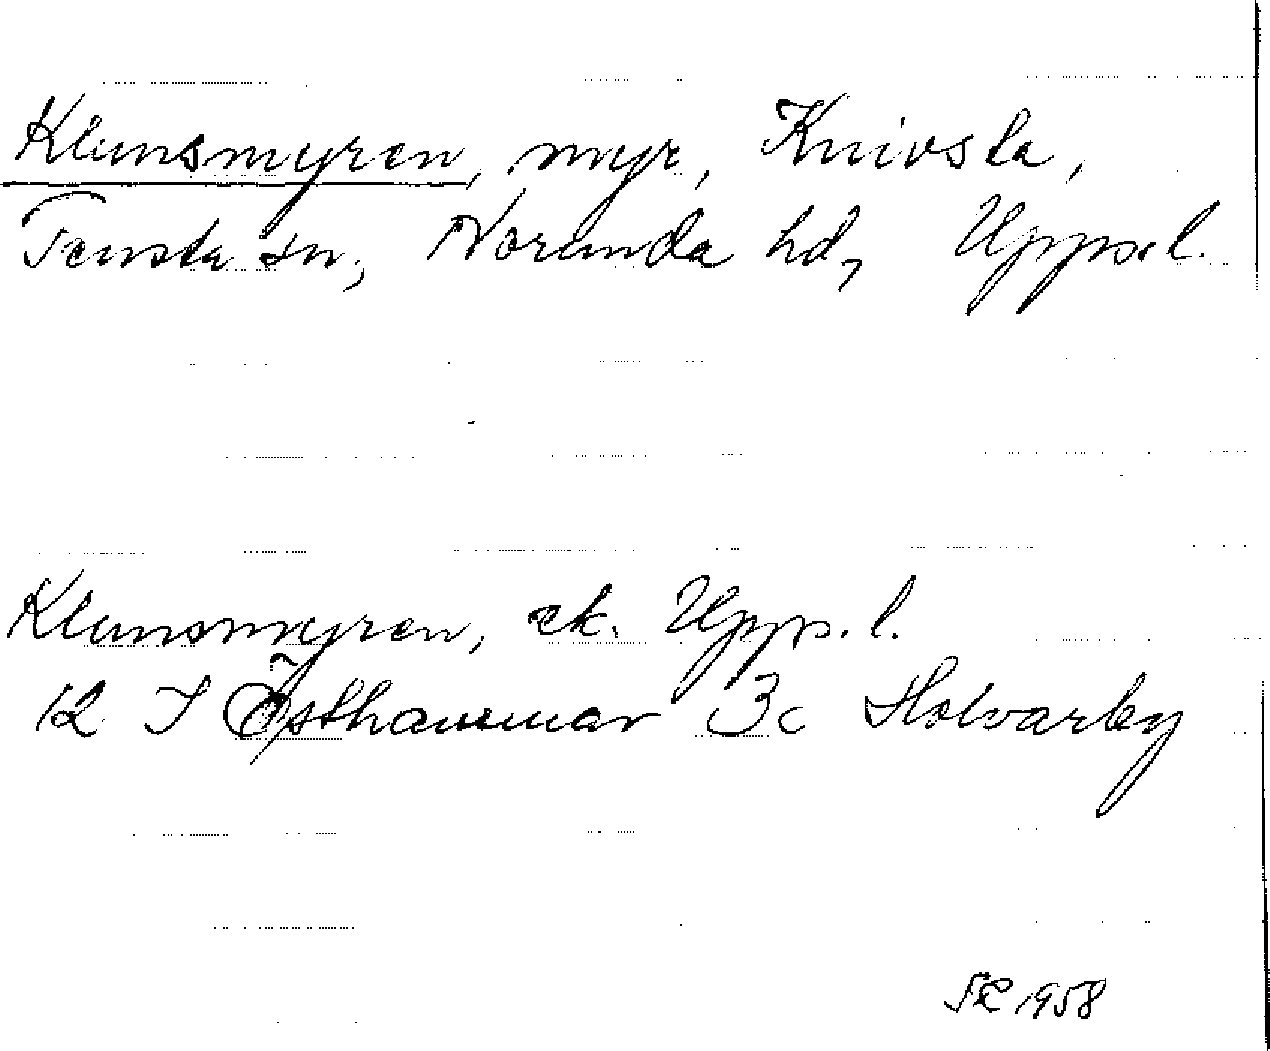 Klunsmyren, myr, Knivsta,
Tensta sn, Norunda hd, Upps. l.
Klunsmyren, ek. Upps. l.
12 I Östhammar 3c Holvarby
1958